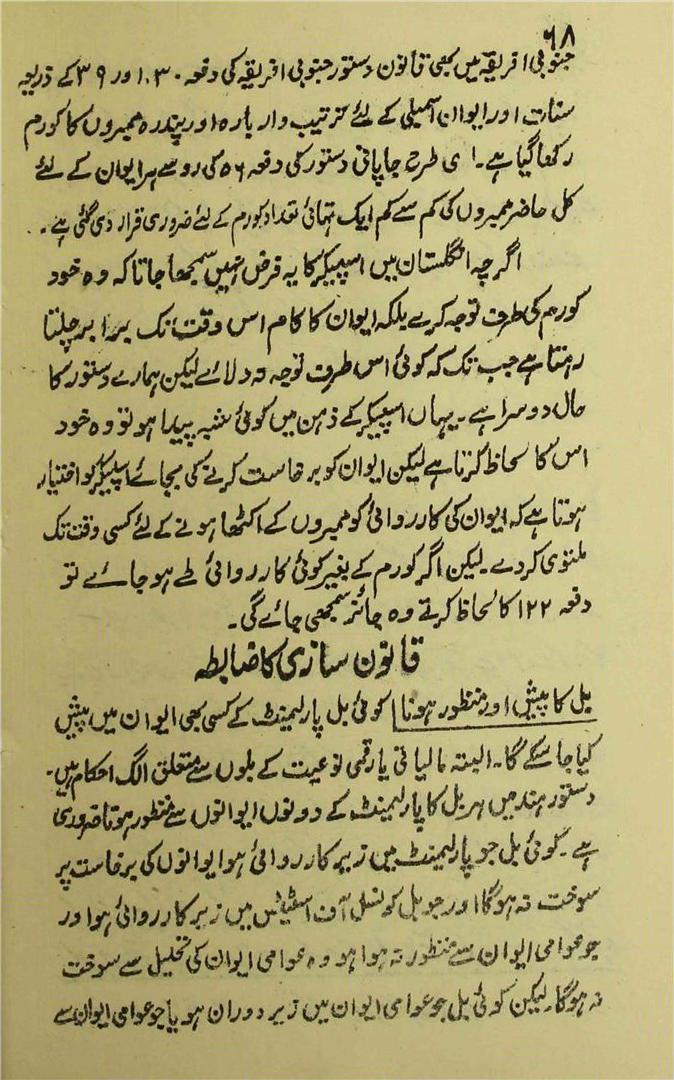 ۶۸
جنوبی افریقہ میں بھی قانون دستور جنوبی افریقہ کی دفعہ ۳۰،۱ اور ۳۹ کے ذریعہ
سنات اور ایوان اسمبلی کے لئے ترتیب وار بارہ اور پندرہ ممبروں کا کورم
رکھا گیا ہے۔ اسی طرح جاپانی دستور کی دفعہ ۵۶ کی رو سے ہر ایوان کے لئے
کل حاضر ممبروں کی کم سے کم ایک تہائی تعداد کورم کے لئے ضروری قرار دی گئی ہے۔
اگرچہ انگلستان میں اسپیکر کا یہ فرض نہیں سمجھا جاتا کہ وہ خود
کورم کی طرف توجہ کرے بلکہ ایوان کا کام اس وقت تک برابر چلتا
رہتا ہے جب تک کہ کوئی اس طرف توجہ نہ دلائے لیکن ہمارے دستور کا
حال دوسرا ہے۔ یہاں اسپیکر کے ذہن میں کوئی شبہ پیدا ہو تو وہ خود
اس کا لحاظ کرتا ہے لیکن ایوان کو برخاست کرنے کی بجائے اسپیکر کو اختیار
ہوتا ہے کہ ایوان کی کارروائی کو ممبروں کے اکٹھا ہونے کے لئے کسی وقت تک
ملتوی کر دے۔ لیکن اگر کورم کے بغیر کوئی کارروائی طے ہو جائے تو
دفعہ ۱۲۲ کا لحاظ کرتے وہ جائز سمجھی جائے گی۔
قانون سازی کا ضابطہ
بل کا پیش اور منظور ہونا کوئی بل پارلیمنٹ کے کسی بھی ایوان میں پیش
کیا جا سکے گا۔ البتہ مالیاتی یا رقمی نوعیت کے بلوں سے متعلق الگ احکام ہیں۔
دستور ہند میں ہر بل کا پارلیمنٹ کے دونوں ایوانوں سے منظور ہونا ضروری
ہے۔ کوئی بل جو پارلیمنٹ میں زیر کارروائی ہو ایوانوں کی برخاست پر
سوخت نہ ہوگا اور جو بل کونسل آف اسٹیٹس میں زیر کارروائی ہو اور
جو عوامی ایوان سے منظور نہ ہوا ہو وہ عوامی ایوان کی تحلیل سے سوخت
نہ ہوگا۔ لیکن کوئی بل جو عوامی ایوان میں زیر دوران ہو یا جو عوامی ایوان سے